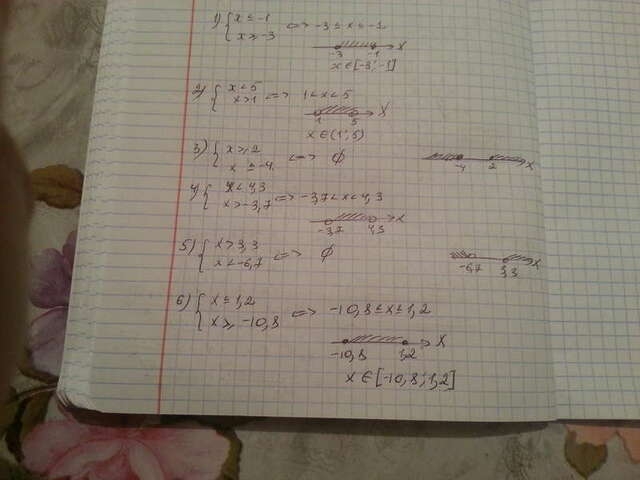 1) { x ≤ -1
x ≥ -3 <=> -3 ≤ x ≤ -1
-3 -1 X
x ∈ [-3; -1]
2) { x < 5
x > 1 <=> 1 < x < 5
1 5 X
x ∈ (1; 5)
3) { x ≥ 2
x ≤ -4 <=> ∅
-4 2 X
4) { x < 4,3
x > -3,7 <=> -3,7 < x < 4,3
-3,7 4,3 X
5) { x > 3,3
x < -6,7 <=> ∅
-6,7 3,3 X
6) { x ≤ 1,2
x ≥ -10,8 <=> -10,8 ≤ x ≤ 1,2
-10,8 1,2 X
x ∈ [-10,8; 1,2]